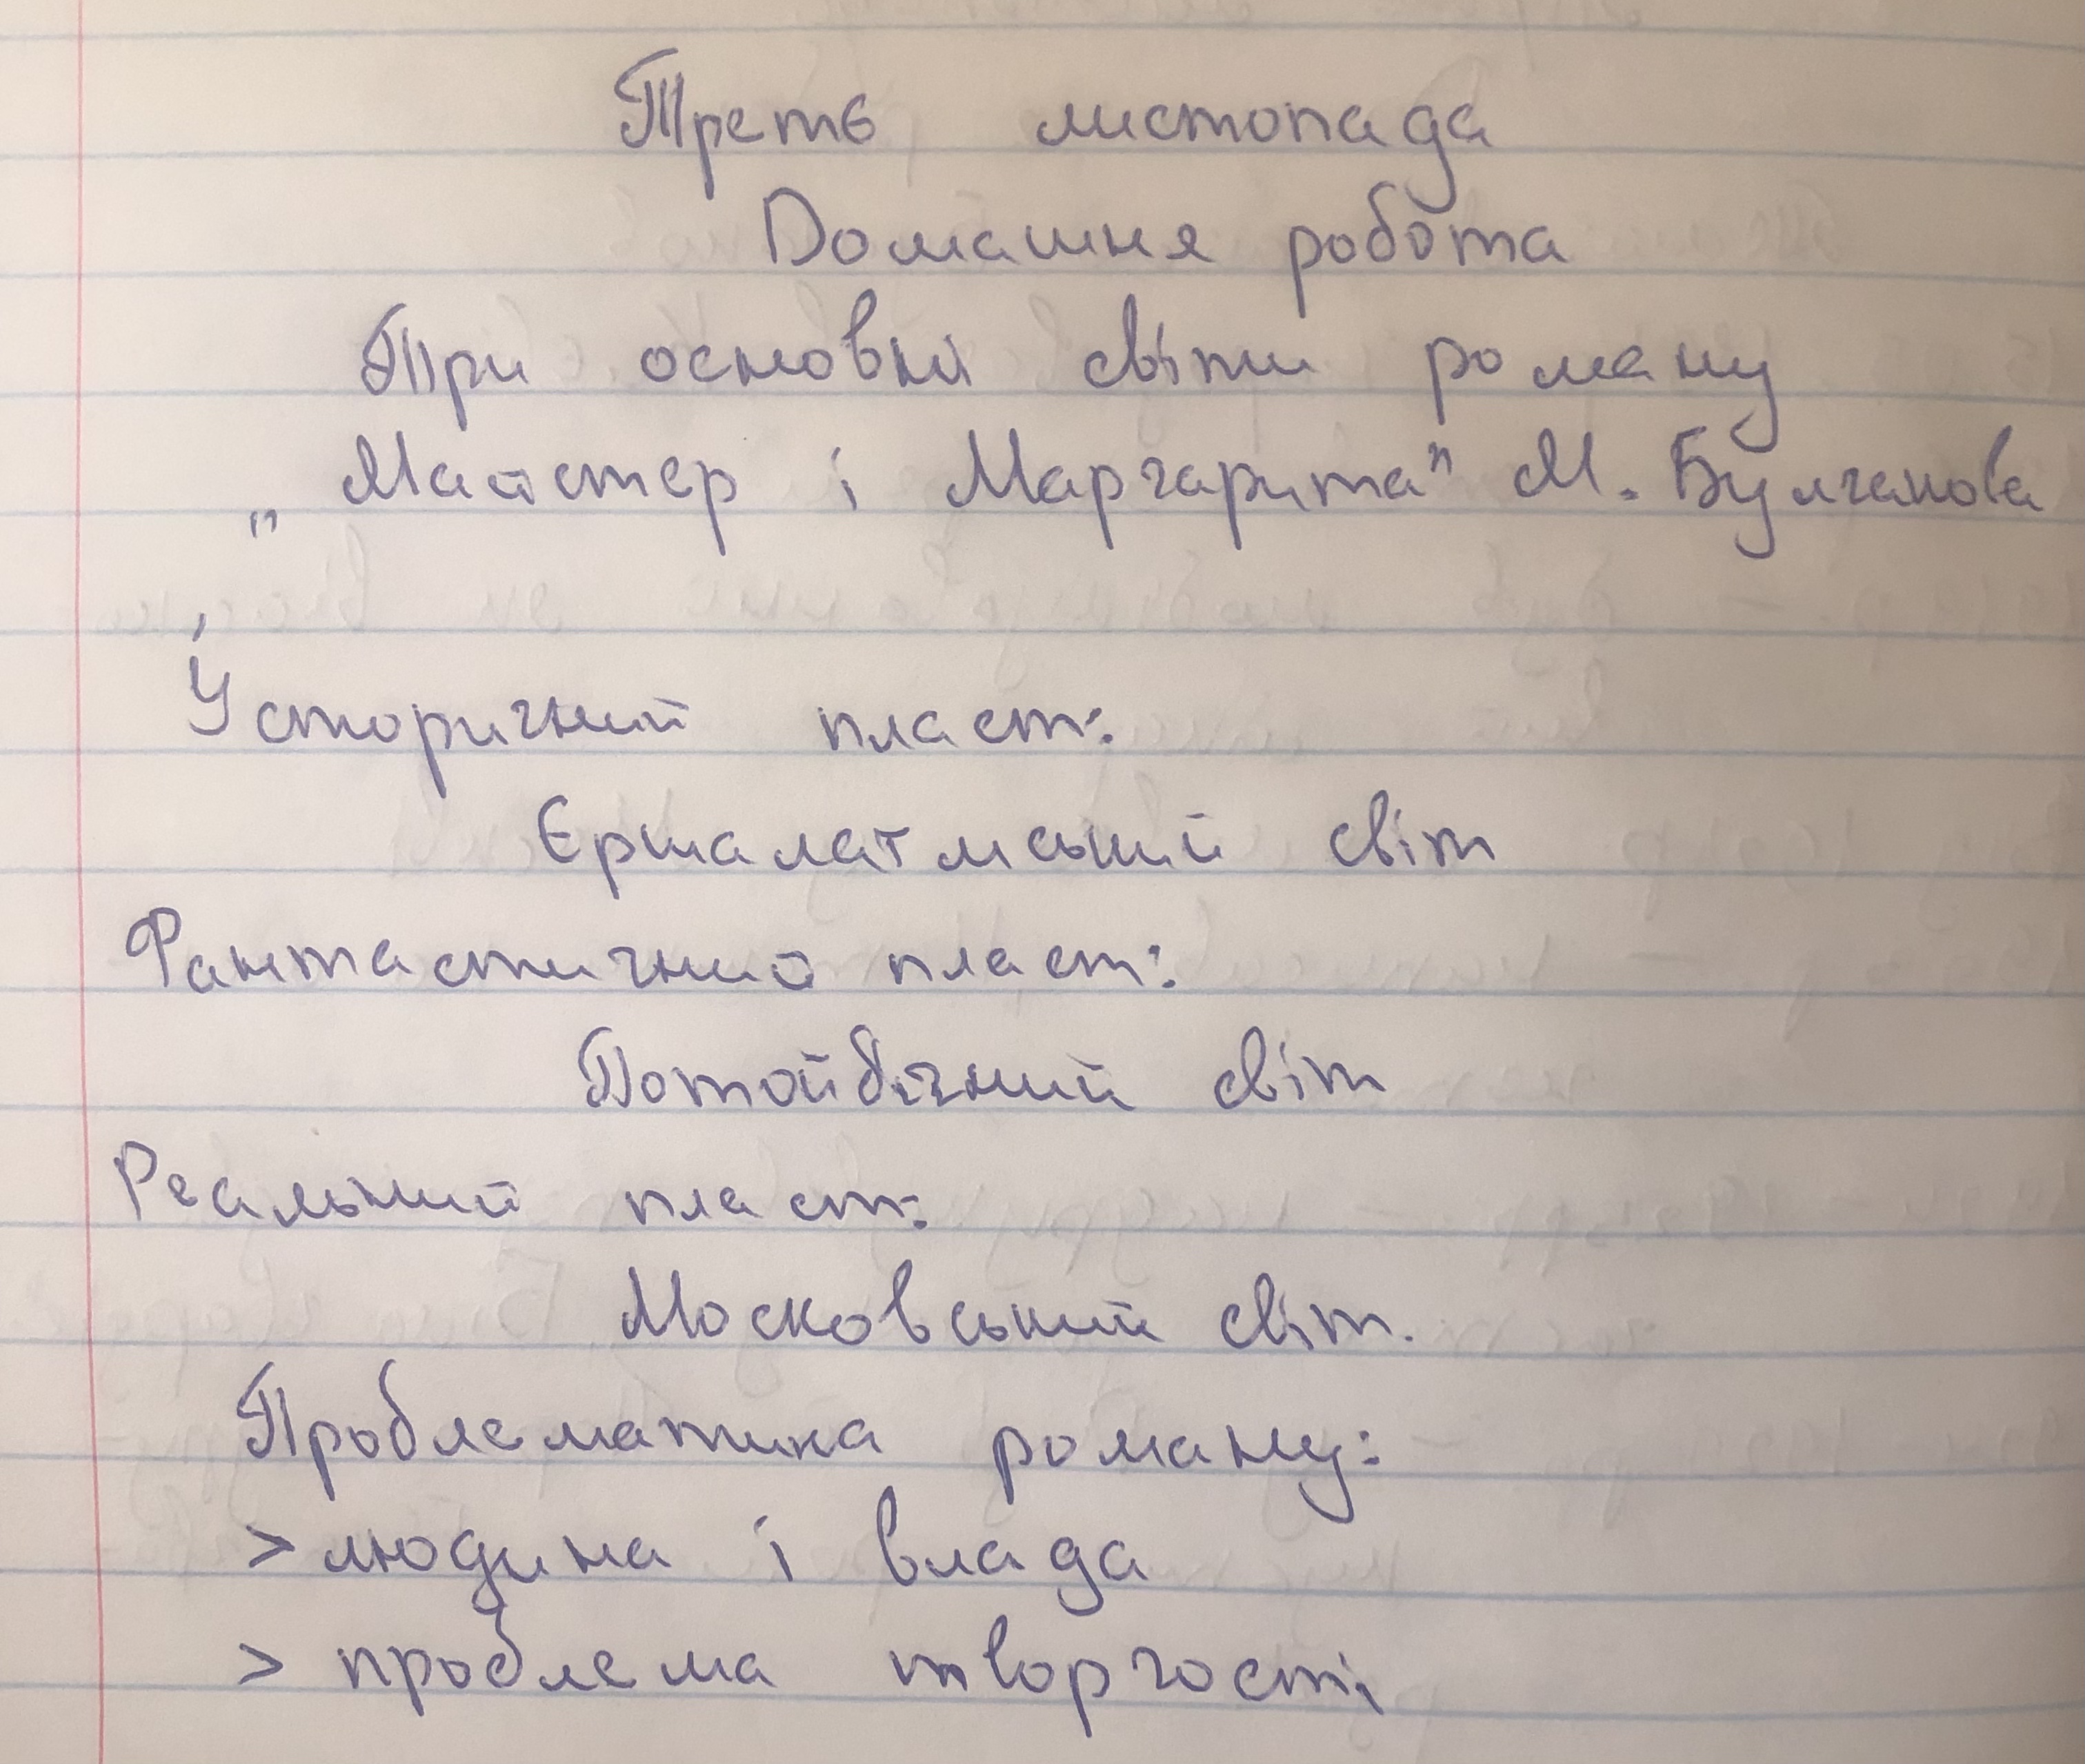 Третє листопада
Домашня робота
При основні світи роману
„Майстер і Маргарита" М. Булгакова
Історичний пласт:
Єршалатмський світ
Фантастичний пласт:
Потойбічний світ
Реальний пласт:
Московський світ.
Проблематика роману:
> людина і влада
> проблема творчості